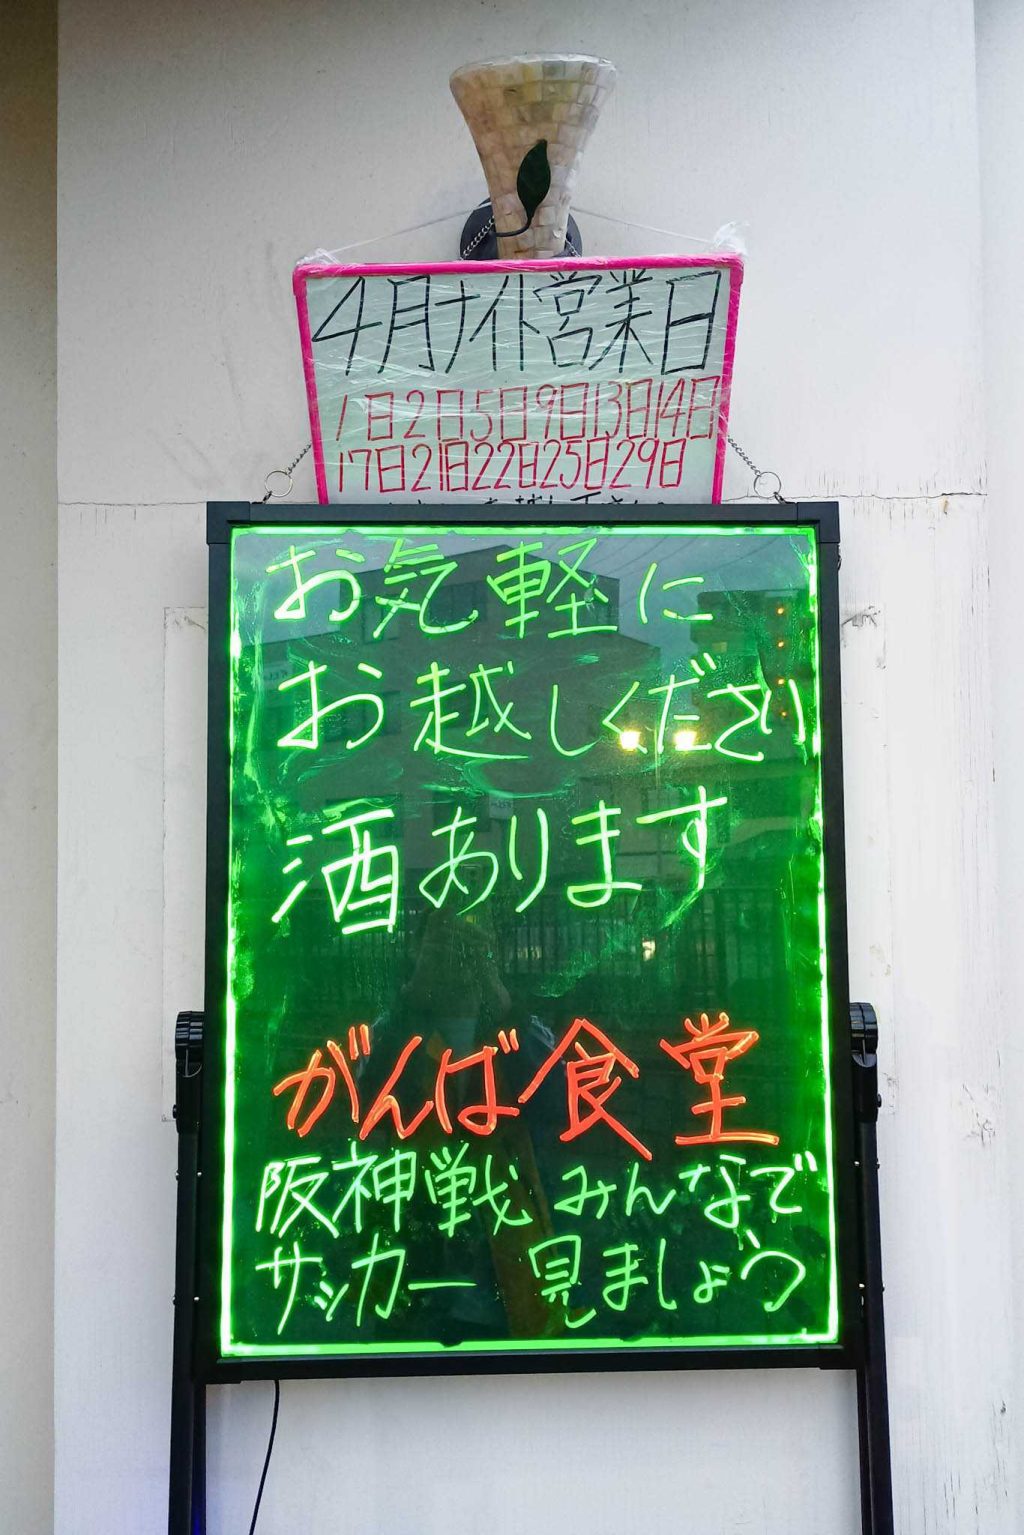 4月ナイト営業日
1日2日5日9日13日14日
17日21日22日25日29日
お気軽に
お越しください
酒あります
がんば食堂
阪神戦 みんなで
サッカー 見ましょう